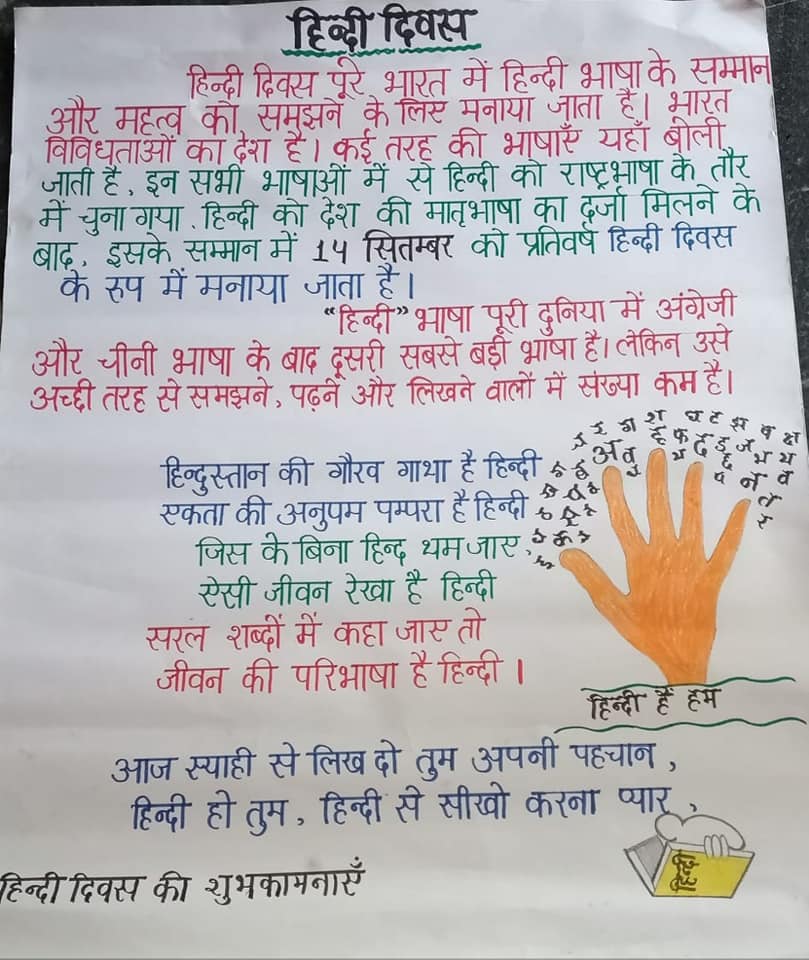 हिन्दी दिवस
हिन्दी दिवस पूरे भारत में हिन्दी भाषा के सम्मान
और महत्व को समझने के लिए मनाया जाता है। भारत
विविधताओं का देश है। कई तरह की भाषाएँ यहाँ बोली
जाती है, इन सभी भाषाओं में से हिन्दी को राष्ट्रभाषा के तौर
में चुना गया. हिन्दी को देश की मातृभाषा का दर्जा मिलने के
बाद, इसके सम्मान में 14 सितम्बर को प्रतिवर्ष हिन्दी दिवस
के रुप में मनाया जाता है।
"हिन्दी" भाषा पूरी दुनिया में अंग्रेजी
और चीनी भाषा के बाद दूसरी सबसे बड़ी भाषा है। लेकिन उसे
अच्छी तरह से समझने, पढ़ने और लिखने वालों में संख्या कम है।
हिन्दुस्तान की गौरव गाथा है हिन्दी
एकता की अनुपम पम्परा है हिन्दी
जिस के बिना हिन्द थम जाए,
ऐसी जीवन रेखा है हिन्दी
सरल शब्दों में कहा जाए तो
जीवन की परिभाषा है हिन्दी।
हिन्दी हैं हम
आज स्याही से लिख दो तुम अपनी पहचान,
हिन्दी हो तुम, हिन्दी से सीखो करना प्यार,
हिन्दी
हिन्दी दिवस की शुभकामनाएँ